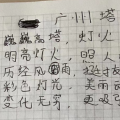 广州塔
巍巍高塔 灯火
明亮灯火,明人
历经风雨,
彩色灯光 美丽
变化无穷 更吸